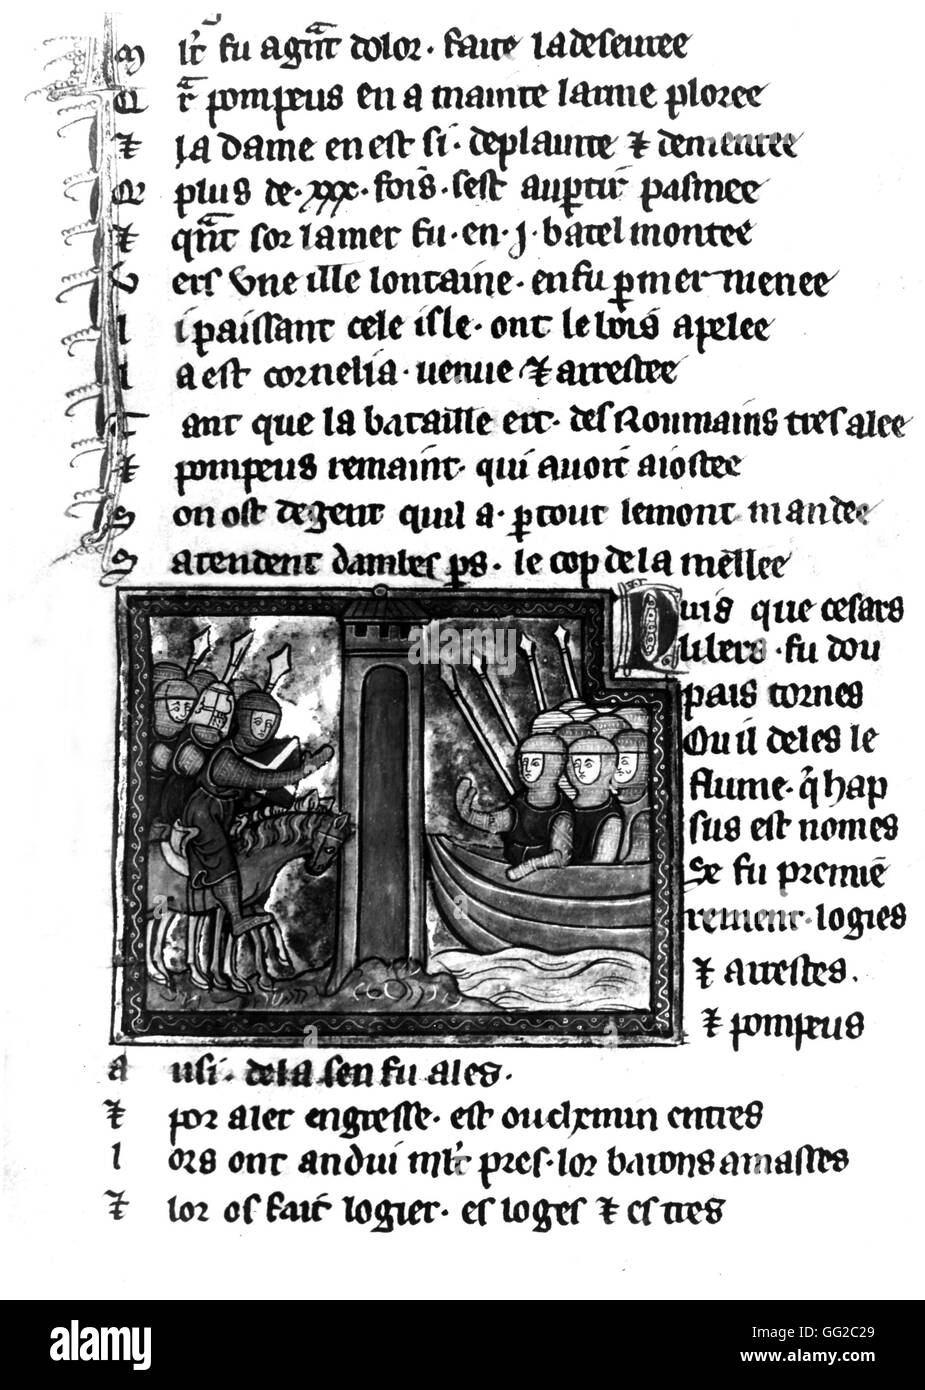 M lt' fu agnt dolor · faite la deseuree
Et pompeus en a mainte larme ploree
⁊ la dame en est si · deplainte ⁊ dementee
Q plus de · xxx · fois · sest au ptir pasmee
⁊ qnt sor la mer fu · en · j · batel montee
V ers vne ille lontaine · en fu p mer menee
l i paissant cele isle · ont le lois apelee
l a est cornelia · venue ⁊ arrestee
T ant que la bataille ert · des Roumains tresalee
⁊ pompeus remaint · qui auoit aiostee
S on ost de gent quil a · p tout le mont mandee
S atendent dambes ps · le cop de la mellee
Puis que cesars
lilers · fu dou
pais tornes
Ou il deles le
flume · q hap
sus est nomes
Se fu premie
rement · logies
⁊ arrestes.
⁊ pompeus
a usi · de la sen fu ales.
⁊ por aler engresse · est ou chemin entres
l ors ont andui mlt' pres · lor barons amasses
⁊ lor os fait logier · es loges ⁊ es tres
alamy
Image ID: GG2C29
www.alamy.com